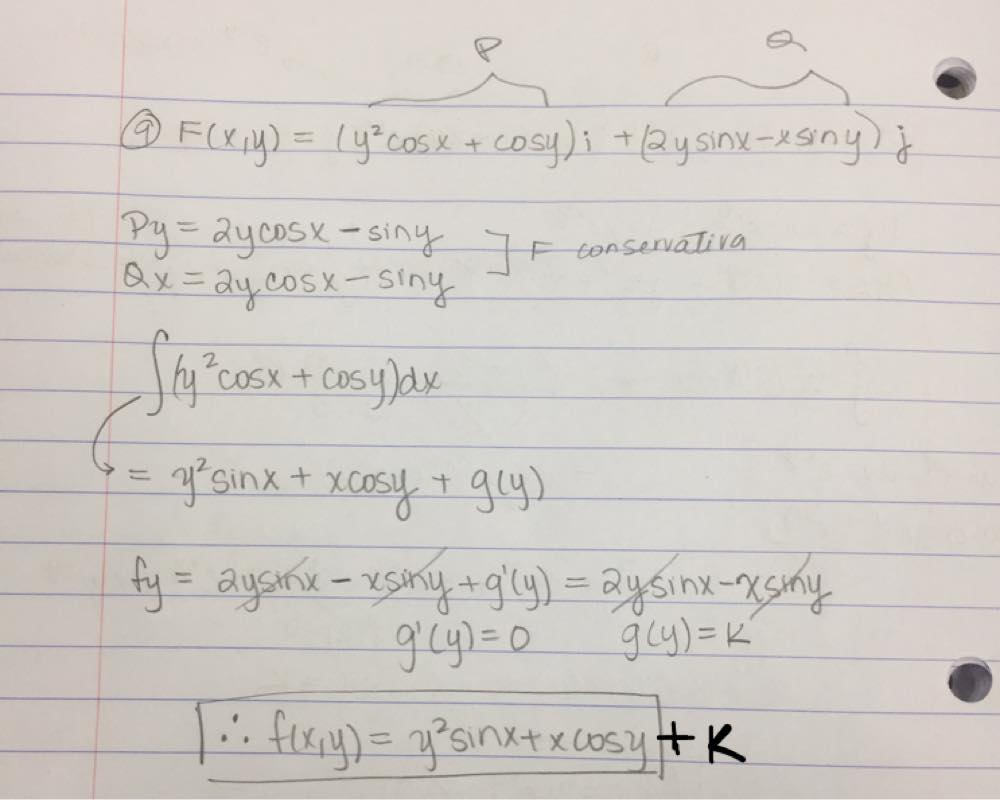 P Q
⑨ F(x,y) = (y²cosx + cosy)i + (2ysinx - xsiny)j
Py = 2ycosx - siny
] F conservativa
Qx = 2ycosx - siny
∫(y²cosx + cosy)dx
= y²sinx + xcosy + g(y)
fy = 2ysinx - xsiny + g'(y) = 2ysinx - xsiny
g'(y) = 0 g(y) = K
∴ f(x,y) = y²sinx + xcosy + K